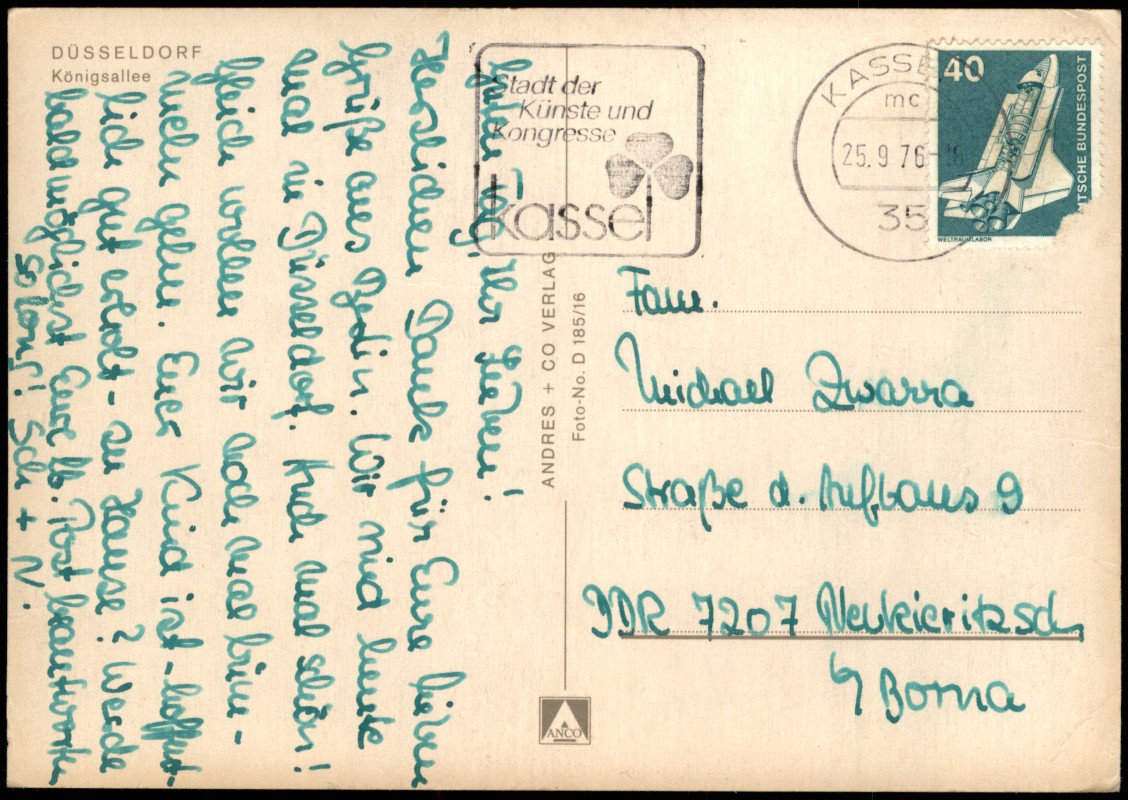 DÜSSELDORF
Königsallee
Guten Tag, Ihr Lieben!
Herzlichen Dank für Eure lieben
Grüße aus. Wir sind heute
mal in Düsseldorf. Auch mal schön!
Gleich wollen wir noch mal bum-
meln gehen. Euer Kind ist - hoffent-
lich gut erholt - zu Hause? Werde
baldmöglichst Eure lb. Post beantworten
So long! Sch + N.
Stadt der
Künste und
Kongresse
kassel
KASSEL
mc
25.9.76-16
35
40
DEUTSCHE BUNDESPOST
WELTRAUMLABOR
ANDRES + CO VERLAG
Foto-No. D 185/16
ANCO
Fam.
Michael Zwarra
Straße d. Aufbaus 9
DDR 7207 Neukieritzsch
b/ Borna